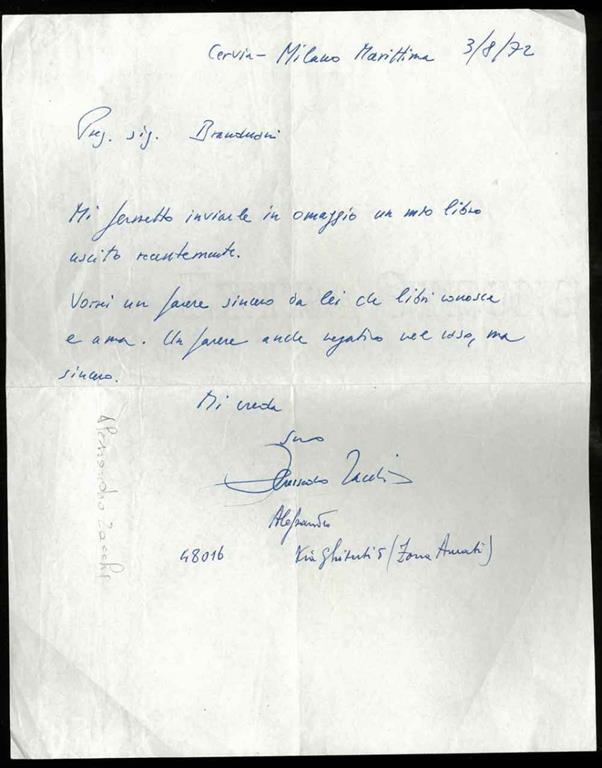 Cervia - Milano Marittima 3/8/72
Preg. sig. Branduani
Mi permetto inviarle in omaggio un mio libro
uscito recentemente.
Vorrei un parere sincero da lei che libri conosce
e ama. Un parere anche negativo nel caso, ma
sincero.
Mi creda
Suo
Alessandro Zacchi
Alessandro
48016 Via Ghiberti 5 (Zona Amati)
Alessandro Zacchi